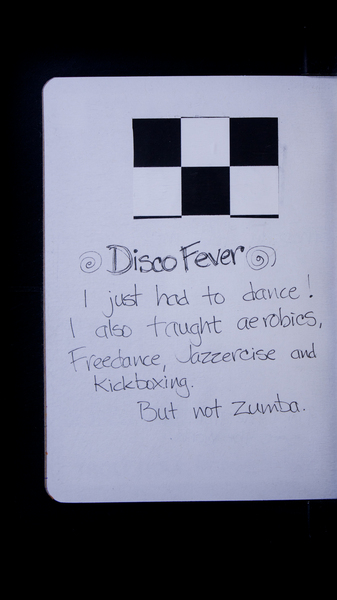 Disco Fever
I just had to dance!
I also taught aerobics,
Freedance, Jazzercise and
Kickboxing.
But not Zumba.